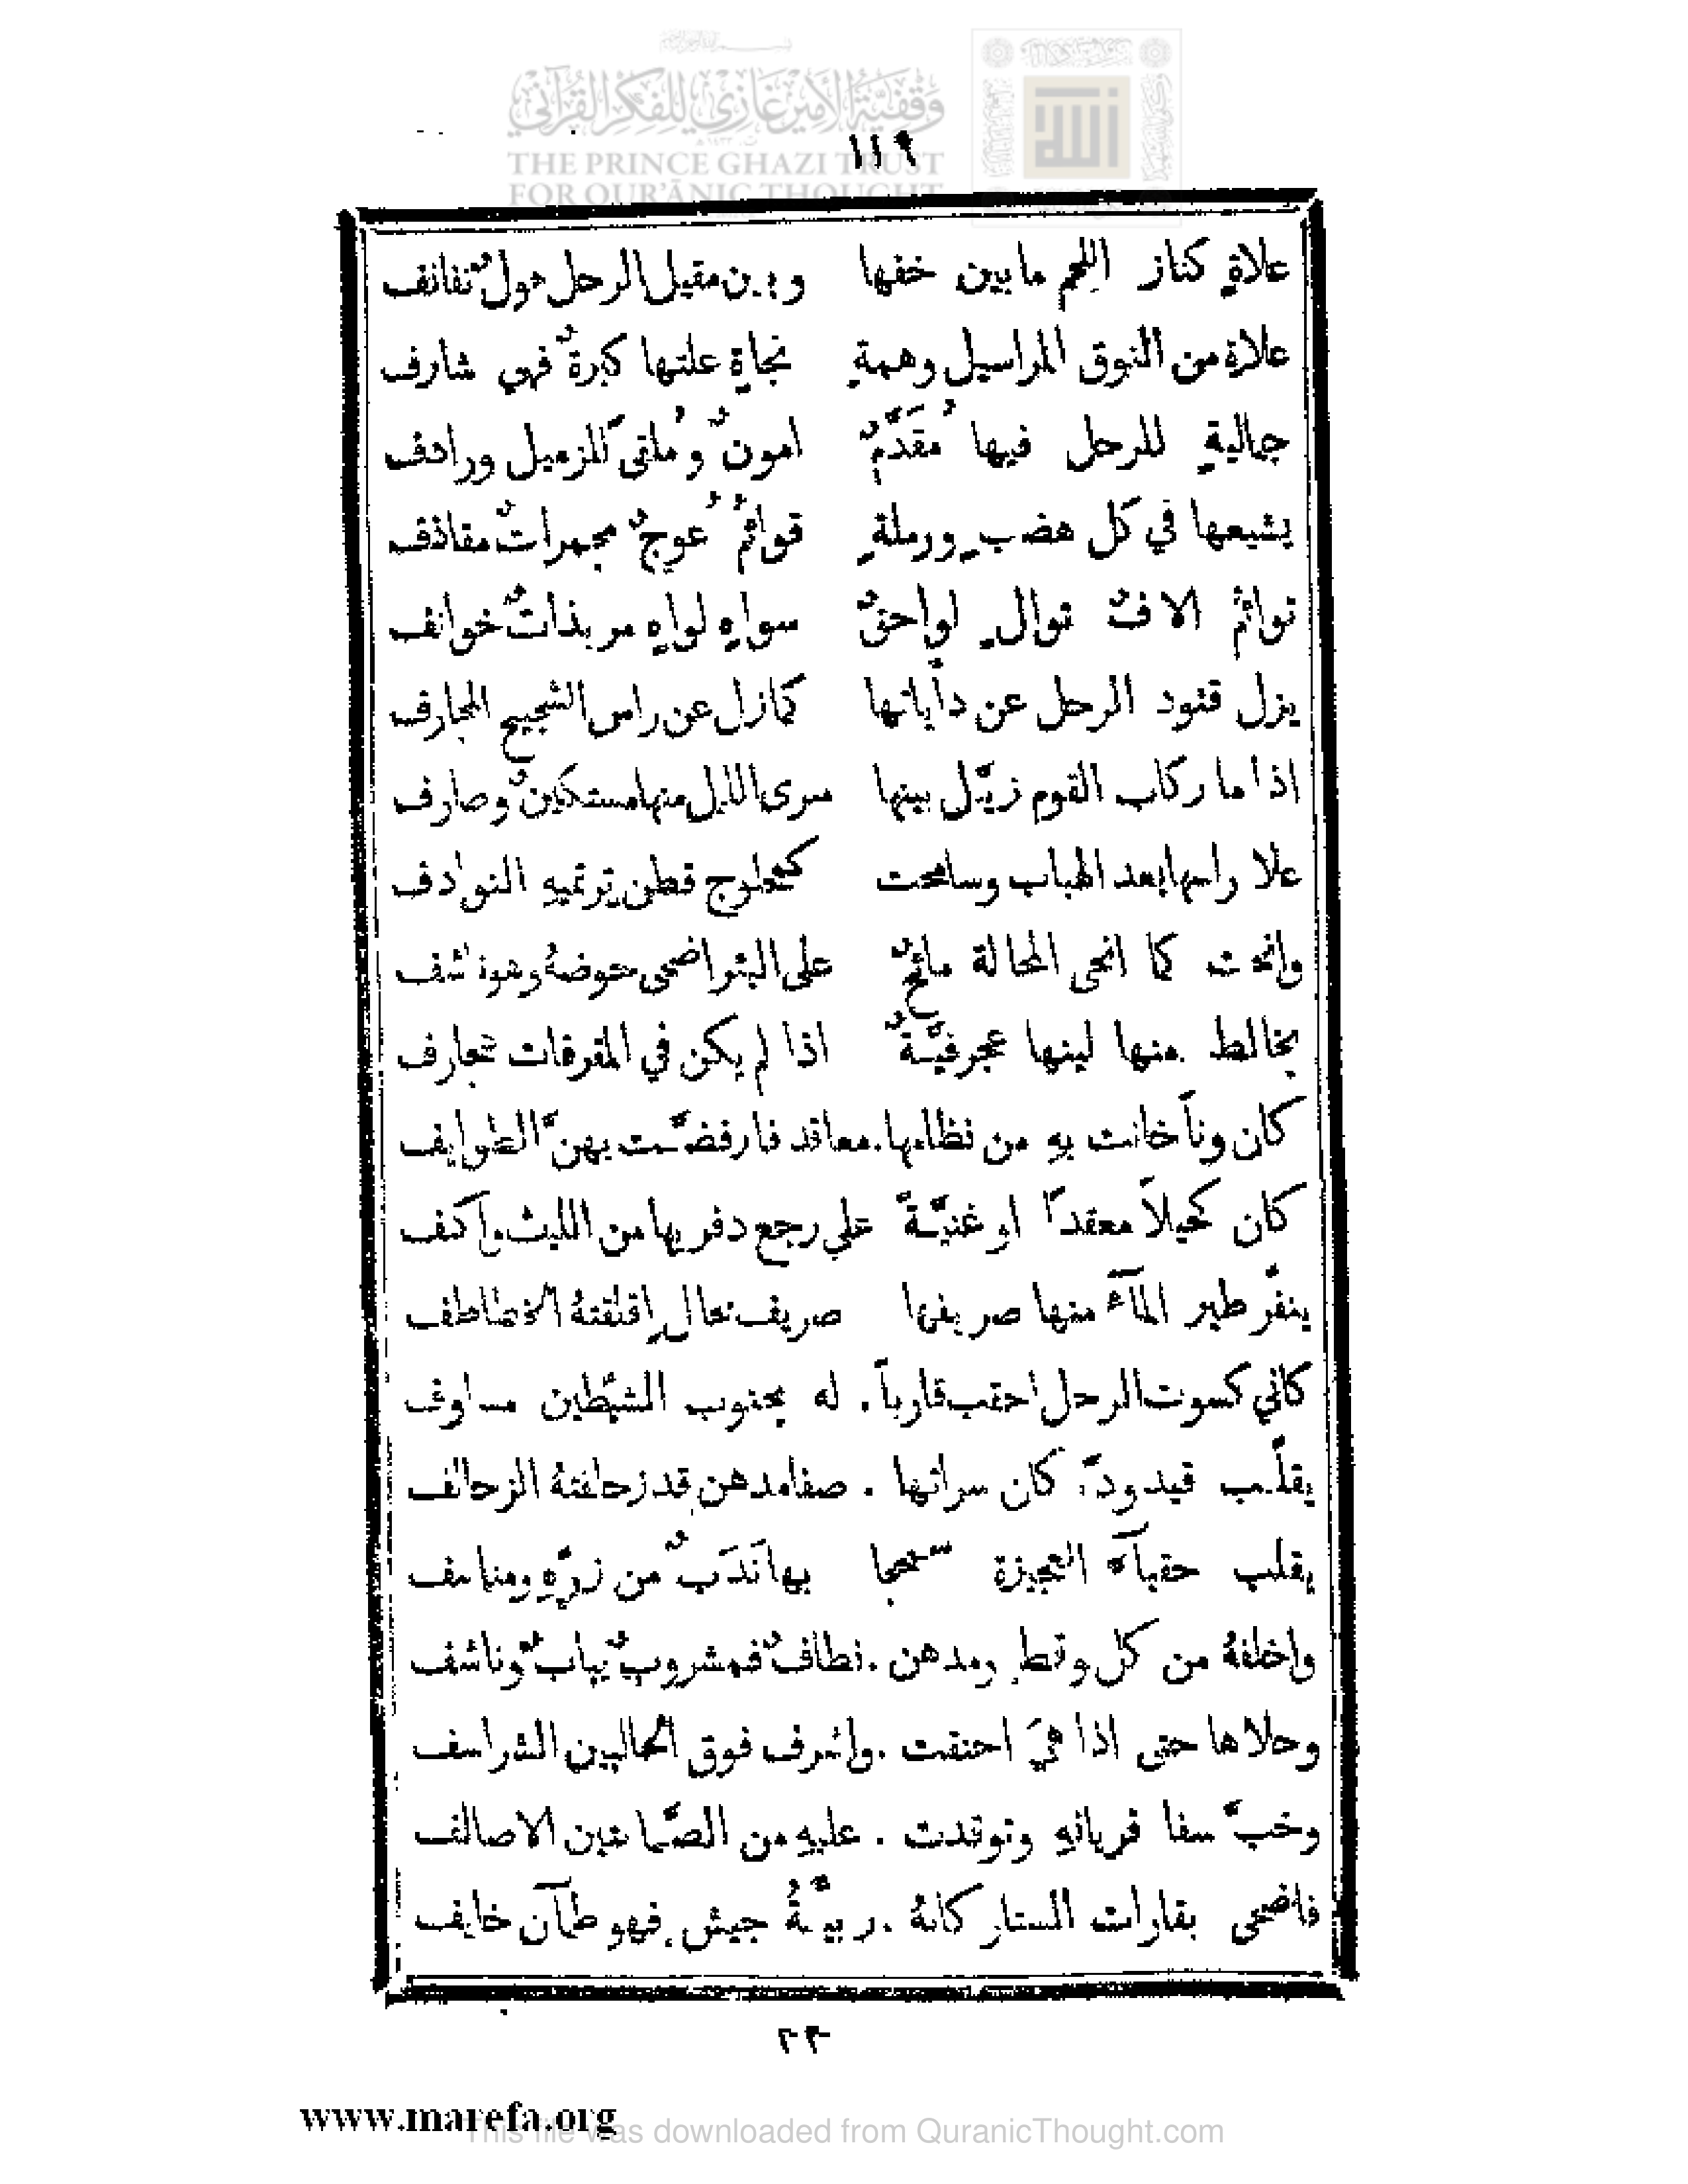 وقفية الأمير غازي للفكر القرآني
THE PRINCE GHAZI TRUST
FOR QUR'ĀNIC THOUGHT
١١٩
علاةٍ كناز اللحم ما بين خفها وبين مقيل الرحل هولٌ نفانف
علاة من النوق المراسيل وهمةٍ نجاةٍ علتها كبرةٌ فهي شارف
جماليةٍ للرحل فيها مُقَدَّمٌ امونٌ وُملقىً للزميل ورادف
يشيعها في كل هضبٍ ورملةٍ قوائمُ عوجٌ مجمرات مقاذف
توائم الافٌ توالٍ لواحقٌ سواهٍ لواهٍ مربذاتٌ خوانف
يزل قتود الرحل عن دأياتها كما زل عن راس الشجيج المحارف
اذا ما ركاب القوم زيَّل بينها سرى الليل منها مستكينٌ وصارف
علا راسها بعد الهباب وسامحت كمحلوج قطن ترتميه النوادف
وانحت كما انحى المحالة ماتحٌ على البئر اضحى حوضهُ وهو ناشف
يخالط منها لينها عجرفيَّةٌ اذا لم يكن في المقرفات عجارف
كان ونًا خانت به من نظامها . معاقد فارفضَّت بهنَّ الطوايف
كان كحيلاً معقدًا او غنيَّةً على رجع دفريها من الليث واكف
ينفّر طير المآء منها صريفها صريف محالٍ اقلقتهُ الخطاطف
كاني كسوت الرحل احقب قاربًا . له بجنوب الشيّطين مساوف
يقلّب قيدودًا كان سراتها . صفا مدهن قد زحلفتهُ الزحالف
يقلب حقبآء العجيزة سمحجا بها نَدَبٌ من زرّهِ ومناسف
واخلفهُ من كل وقطٍ ومدهن . نطافٌ فمشروبٌ يبابٌ وناشف
وحلاها حتى اذا هيَ احنقت . واشرف فوق الحالبين الشراسف
وخبَّ سفا قريانهِ وتوقدت . عليهِ من الصَّمانتين الاصالف
فاضحى بقارات الستار كانهُ . ربيئةُ جيش فهو ظمآن خايف
٢٣
www.marefa.org
This file was downloaded from QuranicThought.com